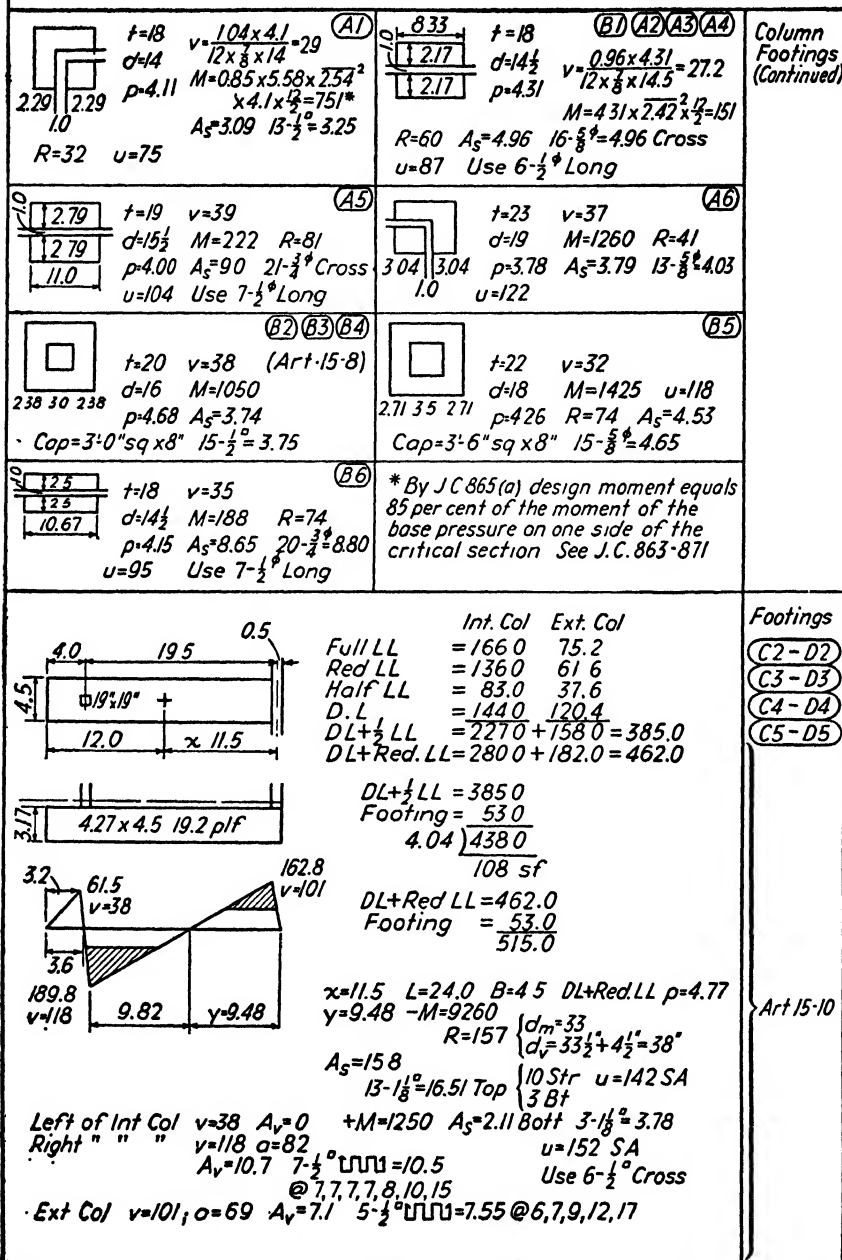 Column
Footings
(Continued)
A1
t=18 v=104x4.1/12x7/8x14=29
d=14
p=4.11 M=0.85x5.58x2.54²
x4.1x12/2=751*
As=3.09 13-1/2□=3.25
2.29 2.29
1.0
R=32 u=75
B1 A2 A3 A4
833
1.0
2.17
2.17
t=18
d=14½ v=0.96x4.31/12x7/8x14.5=27.2
p=4.31
M=4 31x2.42²x12/2=151
R=60 As=4.96 16-5/8ϕ=4.96 Cross
u=87 Use 6-1/2ϕ Long
A5
1.0
2.79
2 79
11.0
t=19 v=39
d=15½ M=222 R=81
p=4.00 As=90 21-3/4ϕ Cross
u=104 Use 7-1/2ϕ Long
A6
t=23 v=37
d=19 M=1260 R=41
3 04 3.04 p=3.78 As=3.79 13-5/8ϕ=4.03
1.0 u=122
B2 B3 B4
t=20 v=38 (Art.15-8)
d=16 M=1050
238 30 238
p=4.68 As=3.74
Cap=3'-0"sq x8" 15-1/2□=3.75
B5
t=22 v=32
d=18 M=1425 u=118
2.71 3 5 2 71
p=426 R=74 As=4.53
Cap=3'-6"sq x8" 15-5/8ϕ=4.65
B6
1.0
2 5
2 5
10.67
t=18 v=35
d=14½ M=188 R=74
p=4.15 As=8.65 20-3/4ϕ=8.80
u=95 Use 7-1/2ϕ Long
* By J C 865(a) design moment equals
85 per cent of the moment of the
base pressure on one side of the
critical section See J. C. 863-871
Footings
C2-D2
C3-D3
C4-D4
C5-D5
Art 15-10
4.0 19.5 0.5
4.5
19"x19"
12.0 x 11.5
Int. Col Ext. Col
Full LL =166 0 75.2
Red LL =136 0 61 6
Half LL = 83.0 37.6
D.L =144 0 120.4
DL+½ LL =227 0+158 0=385.0
DL+Red. LL=280 0+182.0=462.0
3.17
4.27 x 4.5 19.2 plf
DL+½ LL =385 0
Footing= 53 0
4.04 )438 0
108 sf
DL+Red LL=462.0
Footing = 53.0
515.0
3.2
61.5
v=38
162.8
v=101
3.6
189.8
v=118
9.82 y=9.48
x=11.5 L=24.0 B=4 5 DL+Red.LL p=4.77
y=9.48 -M=9260
R=157 {dm=33
dv=33½+4½=38"
As=15 8
13-1⅛□=16.51 Top {10 Str u=142 SA
3 Bt
Left of Int Col v=38 Av=0 +M=1250 As=2.11 Bott 3-1⅛□=3.78
Right " " " v=118 a=82 u=152 SA
Av=10.7 7-1/2□ =10.5 Use 6-1/2□ Cross
@ 7,7,7,7,8,10,15
Ext Col v=101; a=69 Av=7.1 5-1/2□ =7.55 @6,7,9,12,17